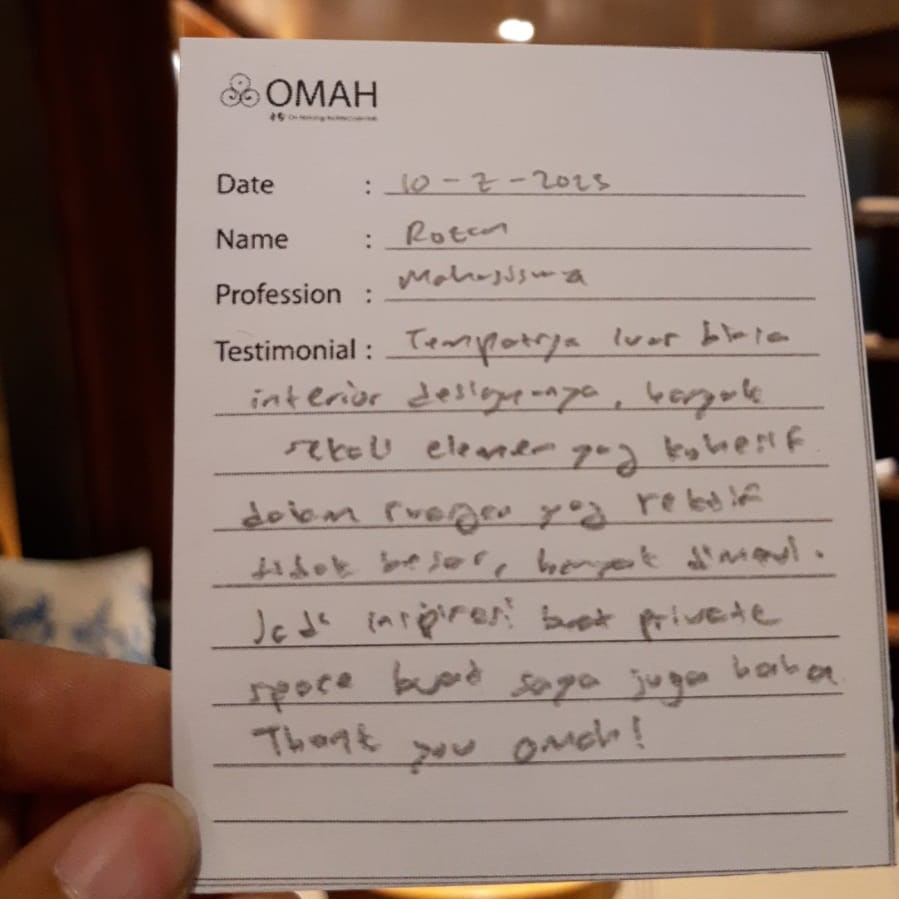 OMAH
Date : 10 - 2 - 2025
Name :
Profession : Mahasiswa
Testimonial : Tempatnya luar biasa
interior designnya, banyak
sekali elemen yng kohesif
dalam ruangan yng relatif
tidak besar, banyak
Jadi inspirasi buat private
space buat saya juga haha
Thank you Omah!